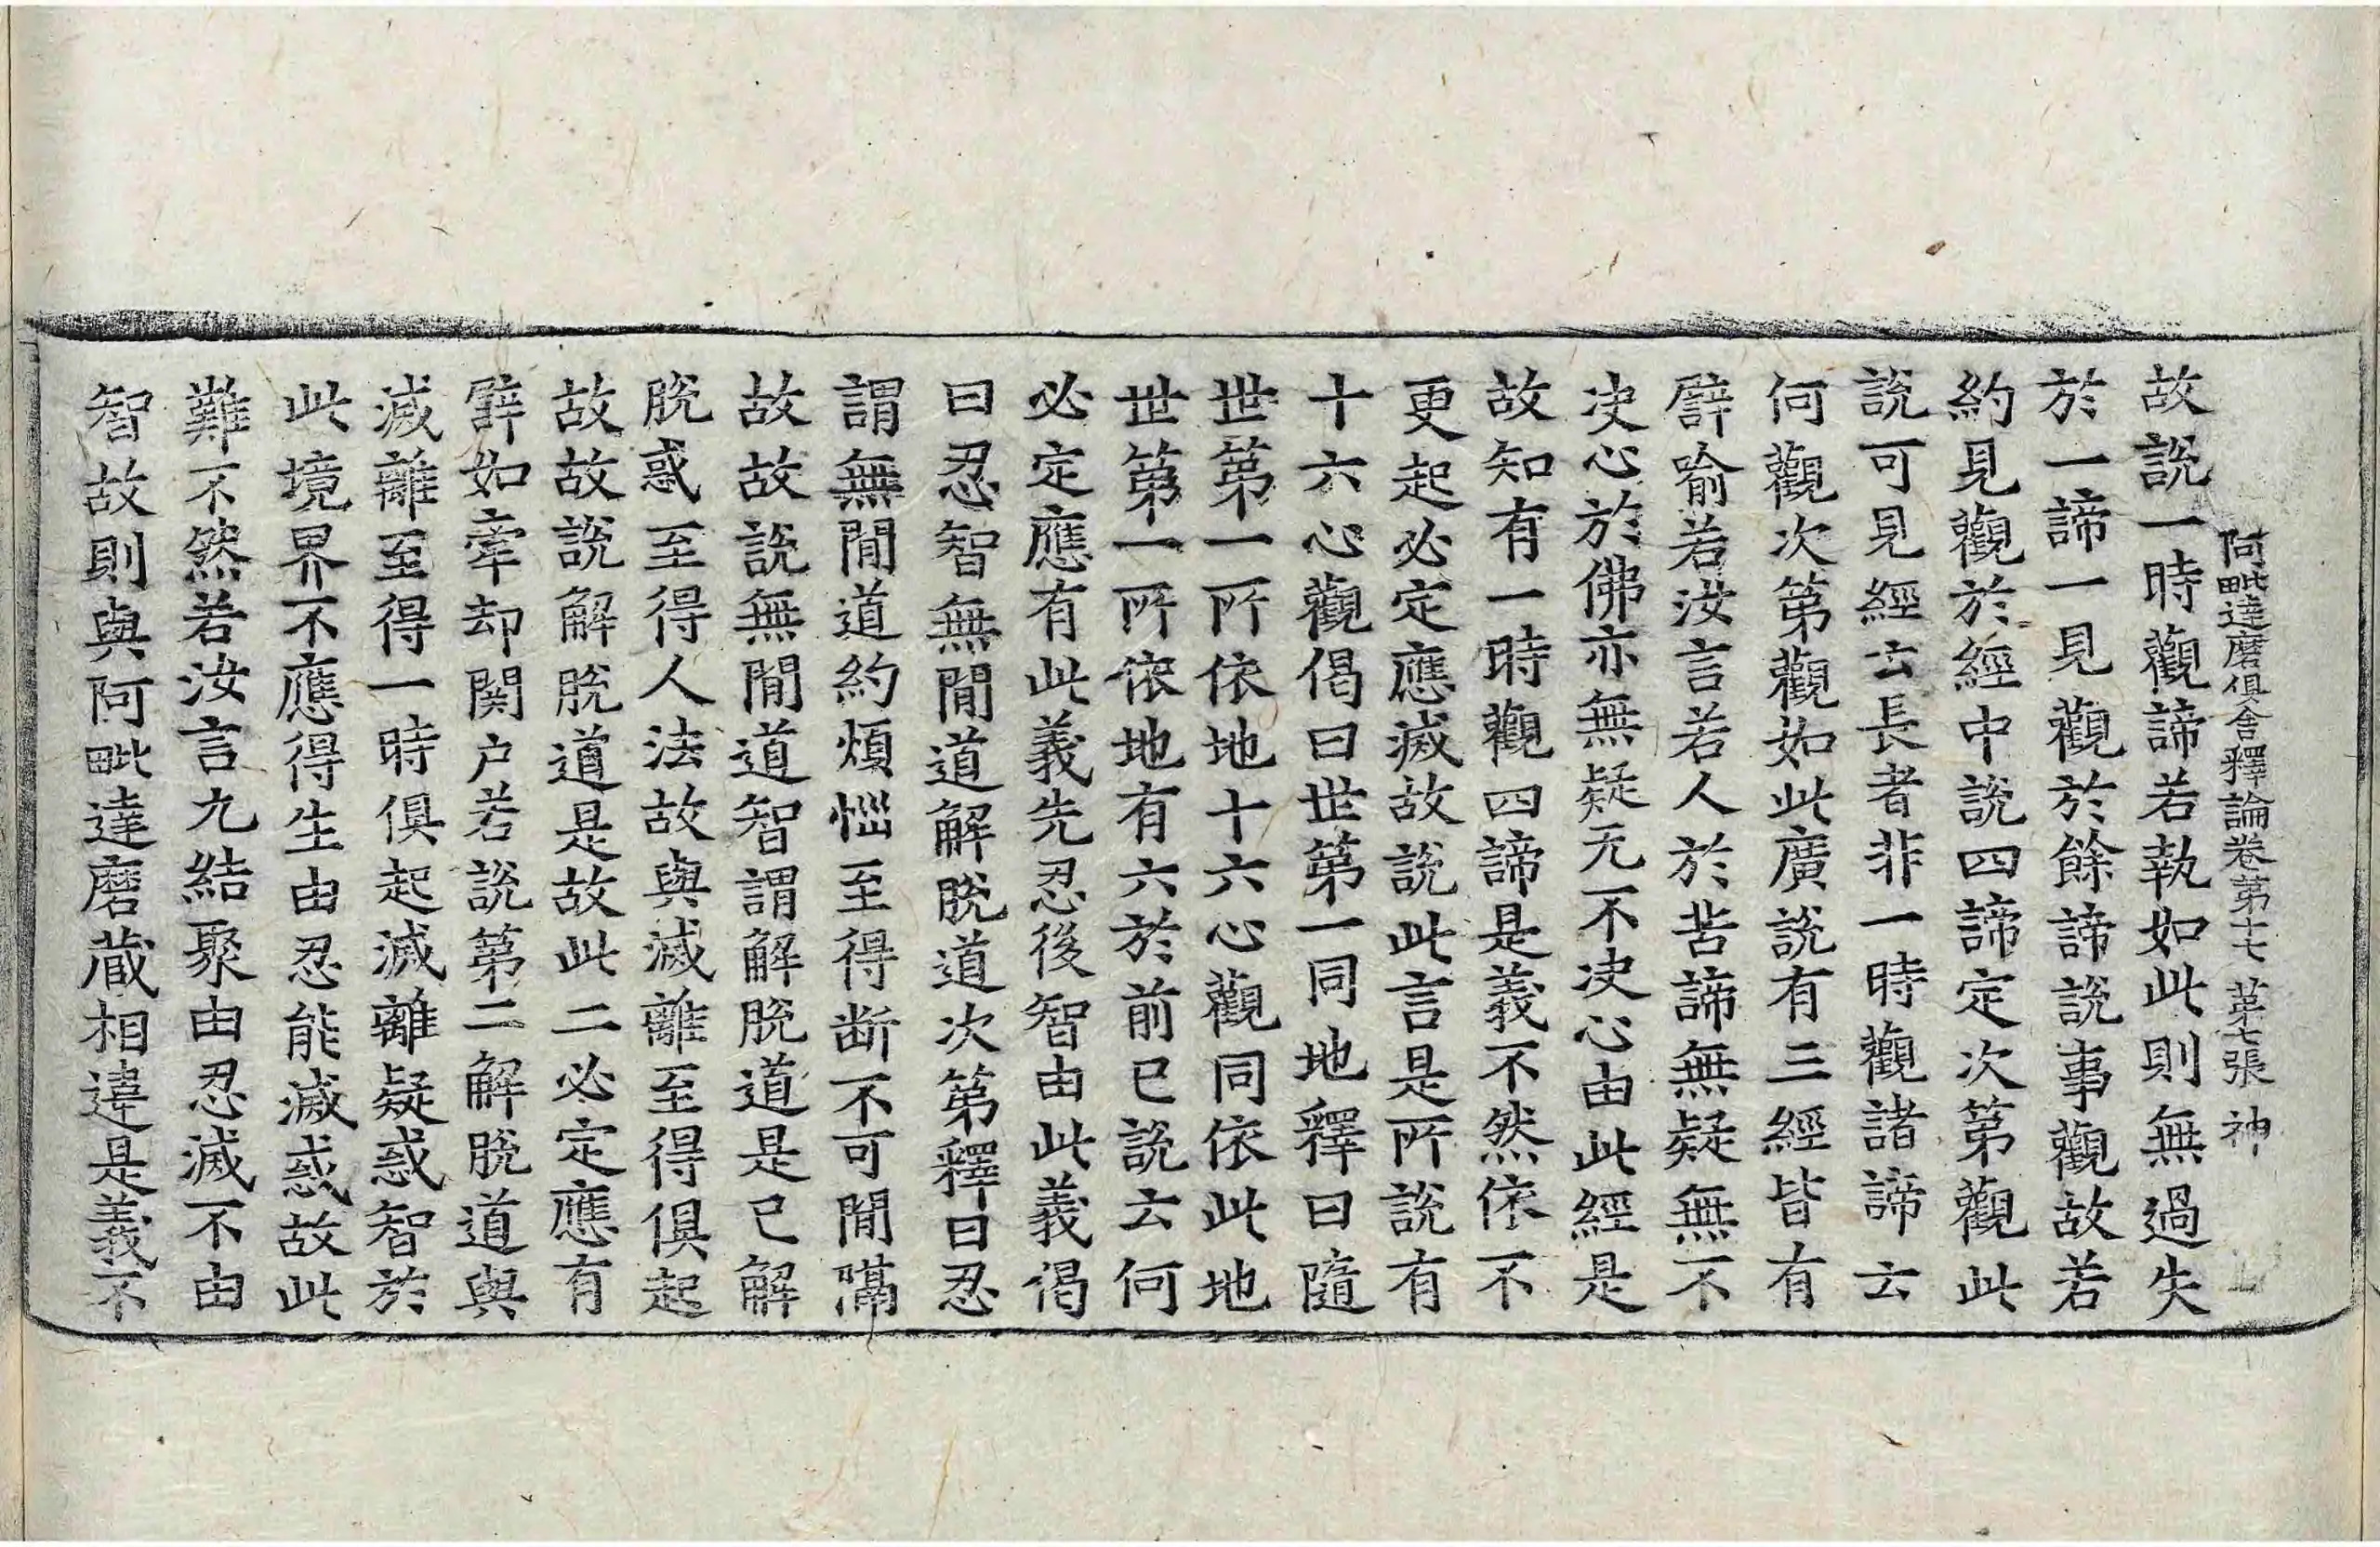 阿毗達磨俱舍釋論卷第十七 第七張 神
故說一時觀諦若執如此則無過失
於一諦一見觀於餘諦說事觀故若
約見觀於經中說四諦定次第觀此
說可見經云長者非一時觀諸諦云
何觀次第觀如此廣說有三經皆有
譬喻若汝言若人於苦諦無疑無不
决心於佛亦無疑无不决心由此經是
故知有一時觀四諦是義不然依不
更起必定應滅故說此言是所說有
十六心觀偈曰世第一同地釋曰隨
世第一所依地十六心觀同依此地
世第一所依地有六於前已說云何
必定應有此義先忍後智由此義偈
曰忍智無閒道解脫道次第釋曰忍
謂無閒道約煩惱至得断不可閒隔
故故說無閒道智謂解脫道是已解
脫惑至得人法故與滅離至得俱起
故故說解脫道是故此二必定應有
譬如牽却関户若說第二解脫道與
滅離至得一時俱起滅離疑惑智於
此境界不應得生由忍能滅惑故此
難不然若汝言九結聚由忍滅不由
智故則與阿毗達磨蔵相違是義不